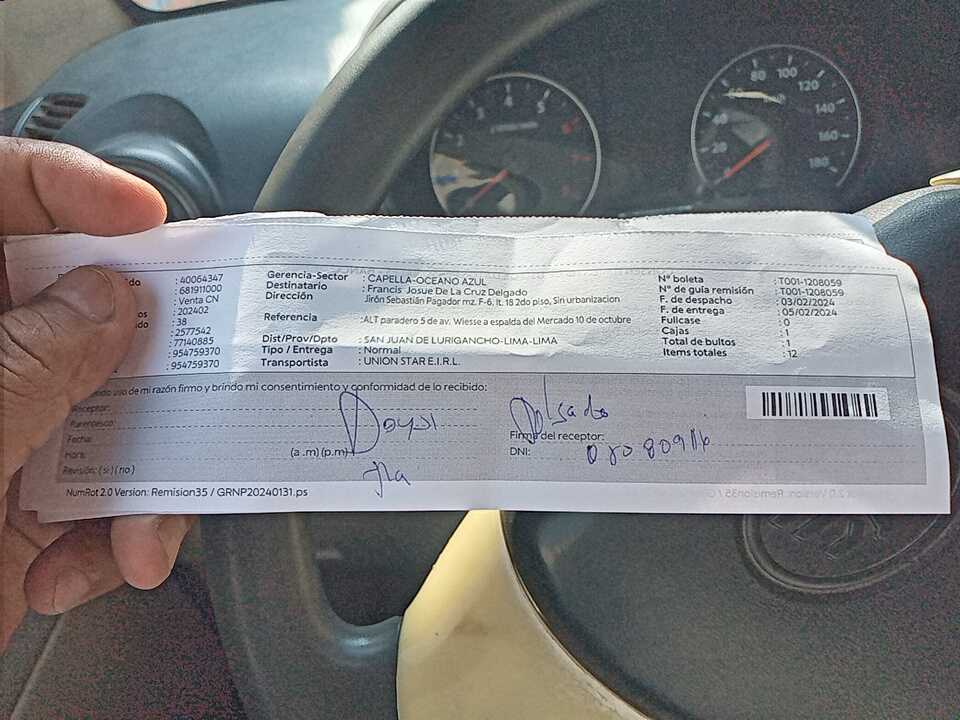 do : 40064347
: 681911000
: Venta CN
os : 202402
ido : 38
: 2577542
: 77140885
: 954759370
: 954759370
Gerencia-Sector : CAPELLA-OCEANO AZUL
Destinatario : Francis Josue De La Cruz Delgado
Dirección Jirón Sebastián Pagador mz. F-6, lt. 18 2do piso, Sin urbanizacion
Referencia :ALT paradero 5 de av. Wiesse a espalda del Mercado 10 de octubre
Dist/Prov/Dpto : SAN JUAN DE LURIGANCHO-LIMA-LIMA
Tipo / Entrega : Normal
Transportista : UNION STAR E.I.R.L.
N° boleta : T001-1208059
N° de guía remisión : T001-1208059
F. de despacho : 03/02/2024
F. de entrega : 05/02/2024
Fullcase : 0
Cajas : 1
Total de bultos : 1
Items totales : 12
ndo uso de mi razón firmo y brindo mi consentimiento y conformidad de lo recibido:
Receptor:
Parentesco:
Fecha:
Hora: (a .m) (p.m)
Revisión: ( si ) ( no )
Delgado
Firma del receptor:
DNI:
NumRot 2.0 Version: Remision35 / GRNP20240131.ps
3 4 5
20 40 80 100 120 140 160 180